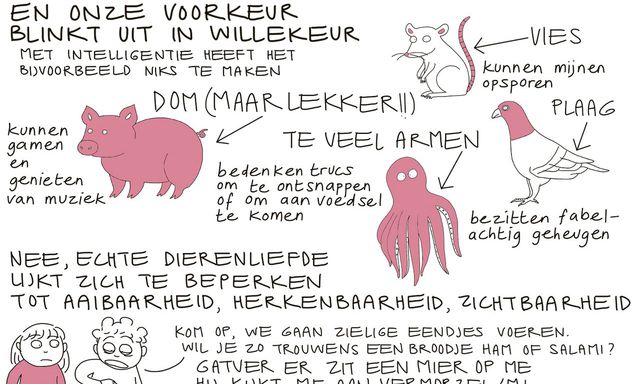 EN ONZE VOORKEUR
BLINKT UIT IN WILLEKEUR
MET INTELLIGENTIE HEEFT HET
BIJVOORBEELD NIKS TE MAKEN
VIES
kunnen mijnen
opsporen
DOM (MAAR LEKKER!!)
kunnen
gamen
en
genieten
van muziek
TE VEEL ARMEN
bedenken trucs
om te ontsnappen
of om aan voedsel
te komen
PLAAG
bezitten fabel-
achtig geheugen
NEE, ECHTE DIERENLIEFDE
LIJKT ZICH TE BEPERKEN
TOT AAIBAARHEID, HERKENBAARHEID, ZICHTBAARHEID
KOM OP, WE GAAN ZIELIGE EENDJES VOEREN.
WIL JE ZO TROUWENS EEN BROODJE HAM OF SALAMI?
GATVER ER ZIT EEN MIER OP ME
HIJ KIJKT ME AAN